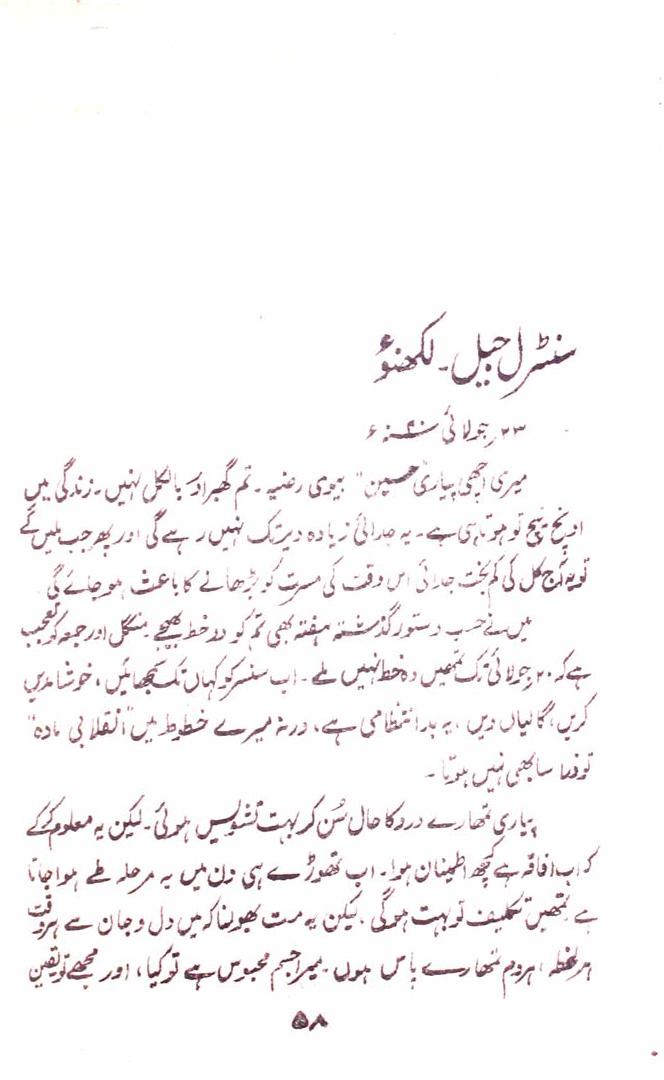 سنٹرل جیل۔ لکھنؤ
۲۳ جولائی سنہ ۴۰ء
میری اچھی پیاری "حسین" بیوی رضیہ۔ تم گھبراؤ بالکل نہیں۔ زندگی میں
اونچ نیچ تو ہوتا ہی ہے۔ یہ جدائی زیادہ دیر تک نہیں رہے گی اور پھر جب ملیں گے
تو یہ آج کل کی کم بخت جدائی اس وقت کی مسرت کو بڑھانے کا باعث ہو جائے گی۔
میں نے حسب دستور گذشتہ ہفتہ بھی تم کو دو خط بھیجے۔ منگل اور جمعہ کو تعجب
ہے کہ ۲۰ جولائی تک تمھیں وہ خط نہیں ملے۔ اب سنسر کو کہاں تک سمجھائیں، خوشامدیں
کریں، گالیاں دیں، یہ بد انتظامی ہے، ورنہ میرے خطوط میں "انقلابی مادہ"
تو ذرا سا بھی نہیں ہوتا۔
پیاری تمھارے درد کا حال سُن کر بہت تشویش ہوئی۔ لیکن یہ معلوم کر کے
کہ اب افاقہ ہے کچھ اطمینان ہوا۔ اب تھوڑے ہی دن میں یہ مرحلہ طے ہوا جاتا
ہے تمھیں تکلیف تو بہت ہوگی۔ لیکن یہ مت بھولنا کہ میں دل و جان سے ہر وقت
ہر لحظہ، ہر دم تمھارے پاس ہوں۔ میرا جسم محبوس ہے تو کیا، اور مجھے تو یقین
۵۸